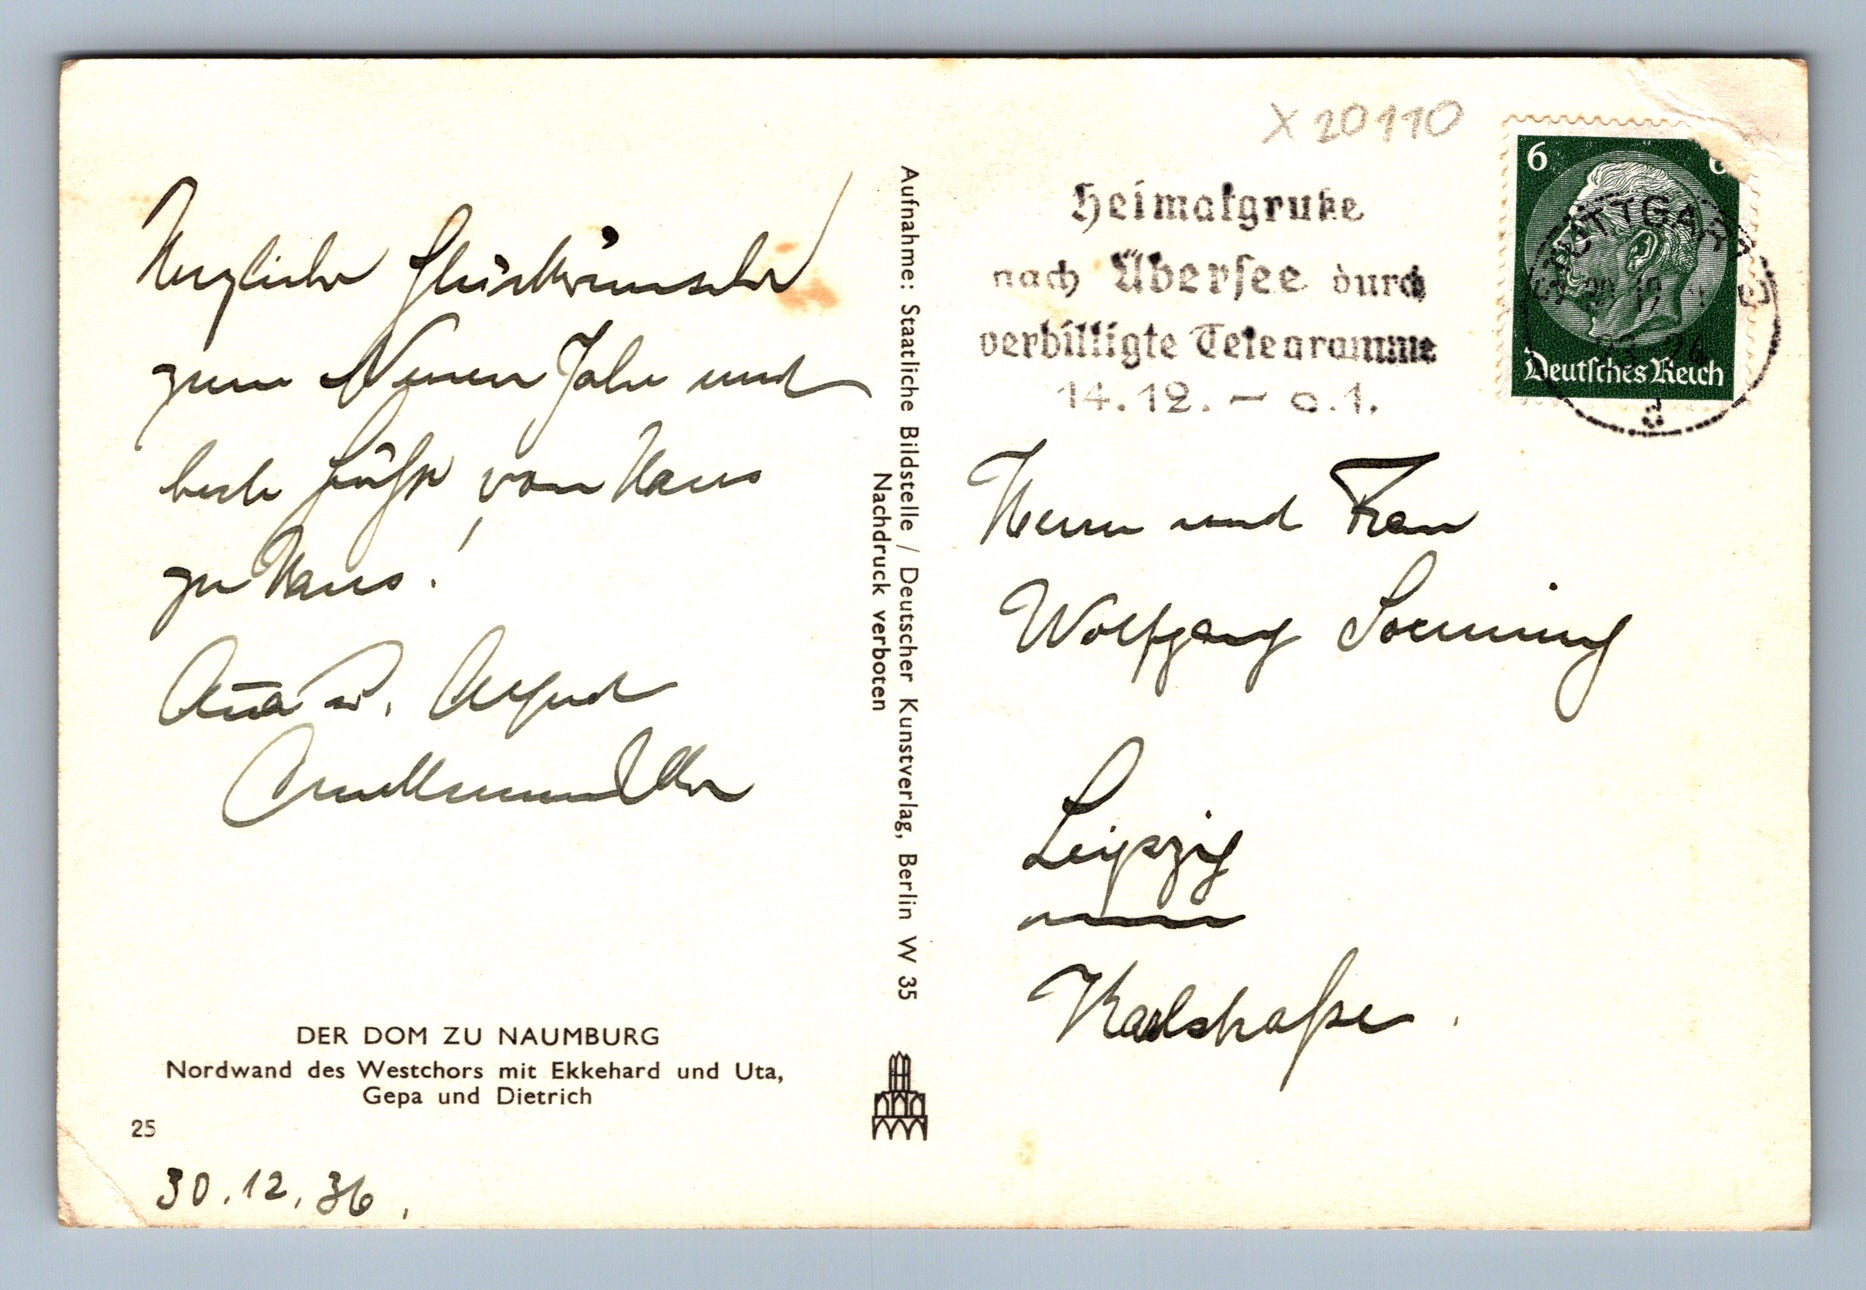 X 20110
Herzliche Glückwünsche
zum Neuen Jahr und
beste Grüße von Haus
zu Haus!
u.
DER DOM ZU NAUMBURG
Nordwand des Westchors mit Ekkehard und Uta,
Gepa und Dietrich
25
30.12.36.
Aufnahme: Staatliche Bildstelle / Deutscher Kunstverlag, Berlin W 35
Nachdruck verboten
Heimatgrüße
nach Übersee durch
verbilligte Telegramme
14.12. – 6.1.
6
6
Deutsches Reich
STUTTGART
Herrn und Frau
Wolfgang
Leipzig
Karlstraße.